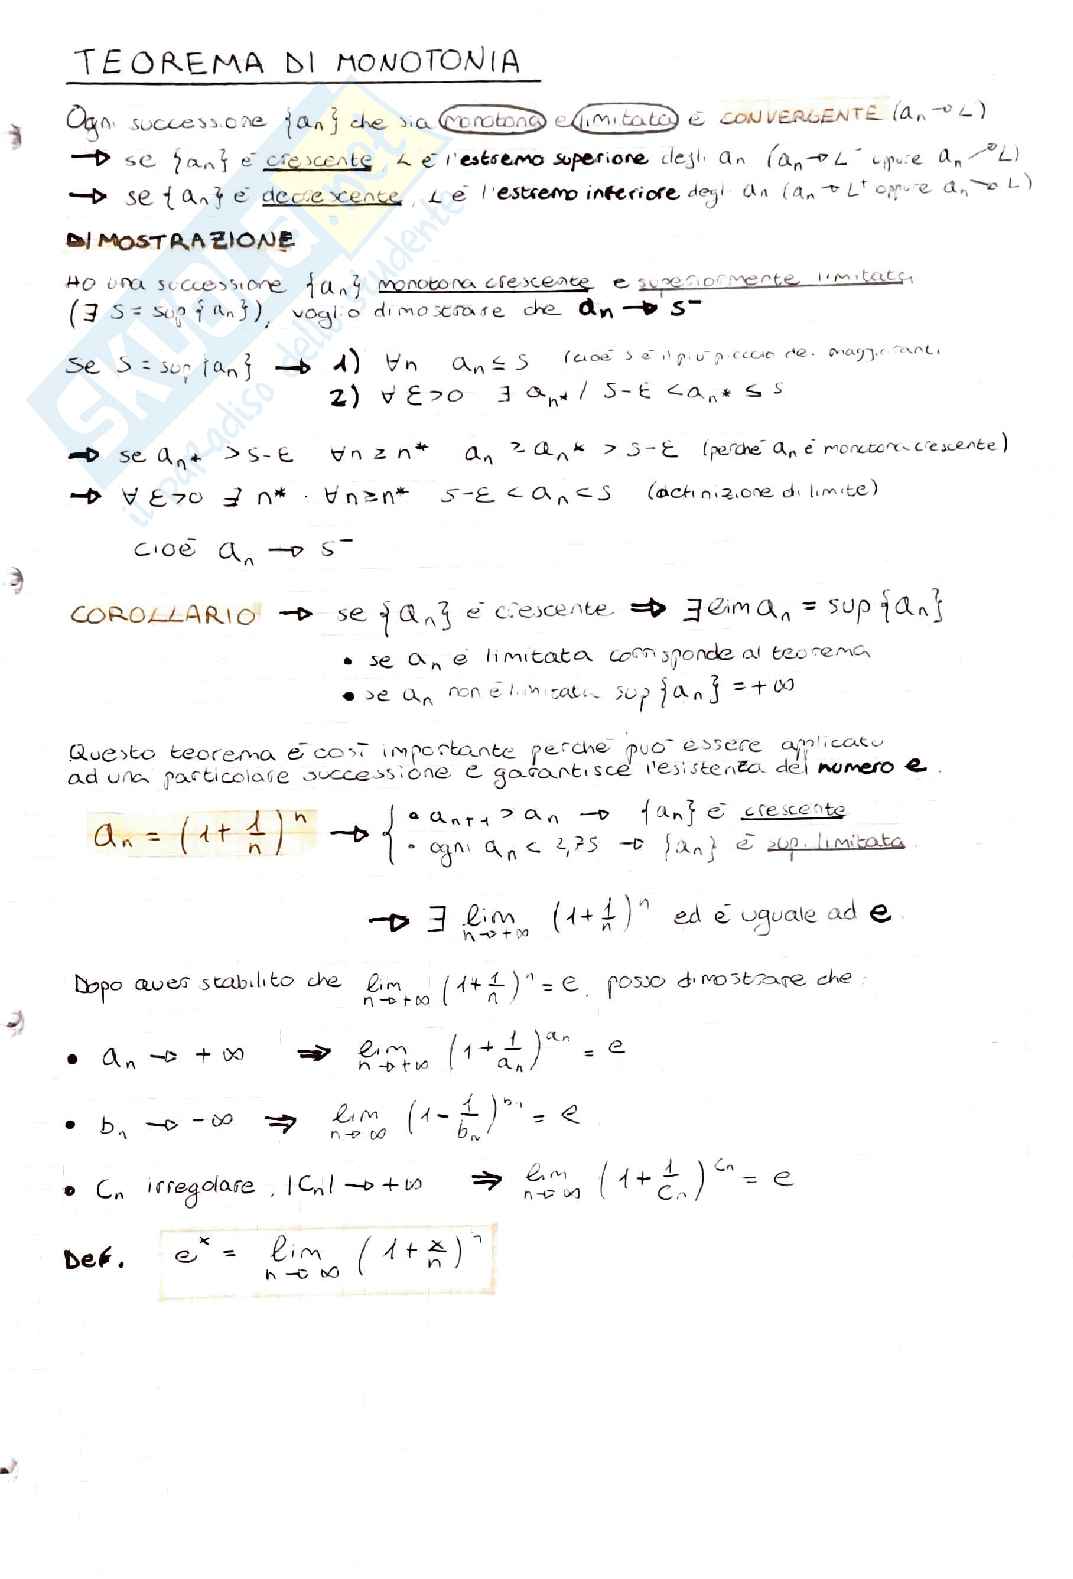 TEOREMA DI MONOTONIA
Ogni successione {aₙ} che sia monotona e limitata è CONVERGENTE (aₙ → L)
→ se {aₙ} è crescente, L è l'estremo superiore degli aₙ (aₙ → L⁻ oppure aₙ ↗ L)
→ se {aₙ} è decrescente, L è l'estremo inferiore degli aₙ (aₙ → L⁺ oppure aₙ ↘ L)
DIMOSTRAZIONE
Ho una successione {aₙ} monotona crescente e superiormente limitata
(∃ S = sup{aₙ}), voglio dimostrare che aₙ → S⁻
Se S = sup{aₙ} → 1) ∀n aₙ ≤ S (cioè S è il più piccolo dei maggioranti
2) ∀ε>0 ∃ aₙ* / S-ε < aₙ* ≤ S
→ se aₙ* > S-ε ∀n ≥ n* aₙ ≥ aₙ* > S-ε (perché aₙ è monotona crescente)
→ ∀ε>0 ∃ n* . ∀n≥n* S-ε < aₙ < S (definizione di limite)
cioè aₙ → S⁻
COROLLARIO → se {aₙ} è crescente ⇒ ∃ lim aₙ = sup{aₙ}
• se aₙ è limitata corrisponde al teorema
• se aₙ non è limitata sup{aₙ} = +∞
Questo teorema è così importante perché può essere applicato
ad una particolare successione e garantisce l'esistenza del numero e.
aₙ = (1 + 1/n)ⁿ → { • aₙ₊₁ > aₙ → {aₙ} è crescente
• ogni aₙ < 2,75 → {aₙ} è sup. limitata
→ ∃ lim n→+∞ (1 + 1/n)ⁿ ed è uguale ad e.
Dopo aver stabilito che lim n→+∞ (1 + 1/n)ⁿ = e, posso dimostrare che:
• aₙ → +∞ ⇒ lim n→+∞ (1 + 1/aₙ)^aₙ = e
• bₙ → -∞ ⇒ lim n→∞ (1 - 1/bₙ)^bₙ = e
• Cₙ irregolare, |Cₙ| → +∞ ⇒ lim n→∞ (1 + 1/Cₙ)^Cₙ = e
Def. eˣ = lim n→∞ (1 + x/n)ⁿ
SKUOLA.net
il paradiso dello studente